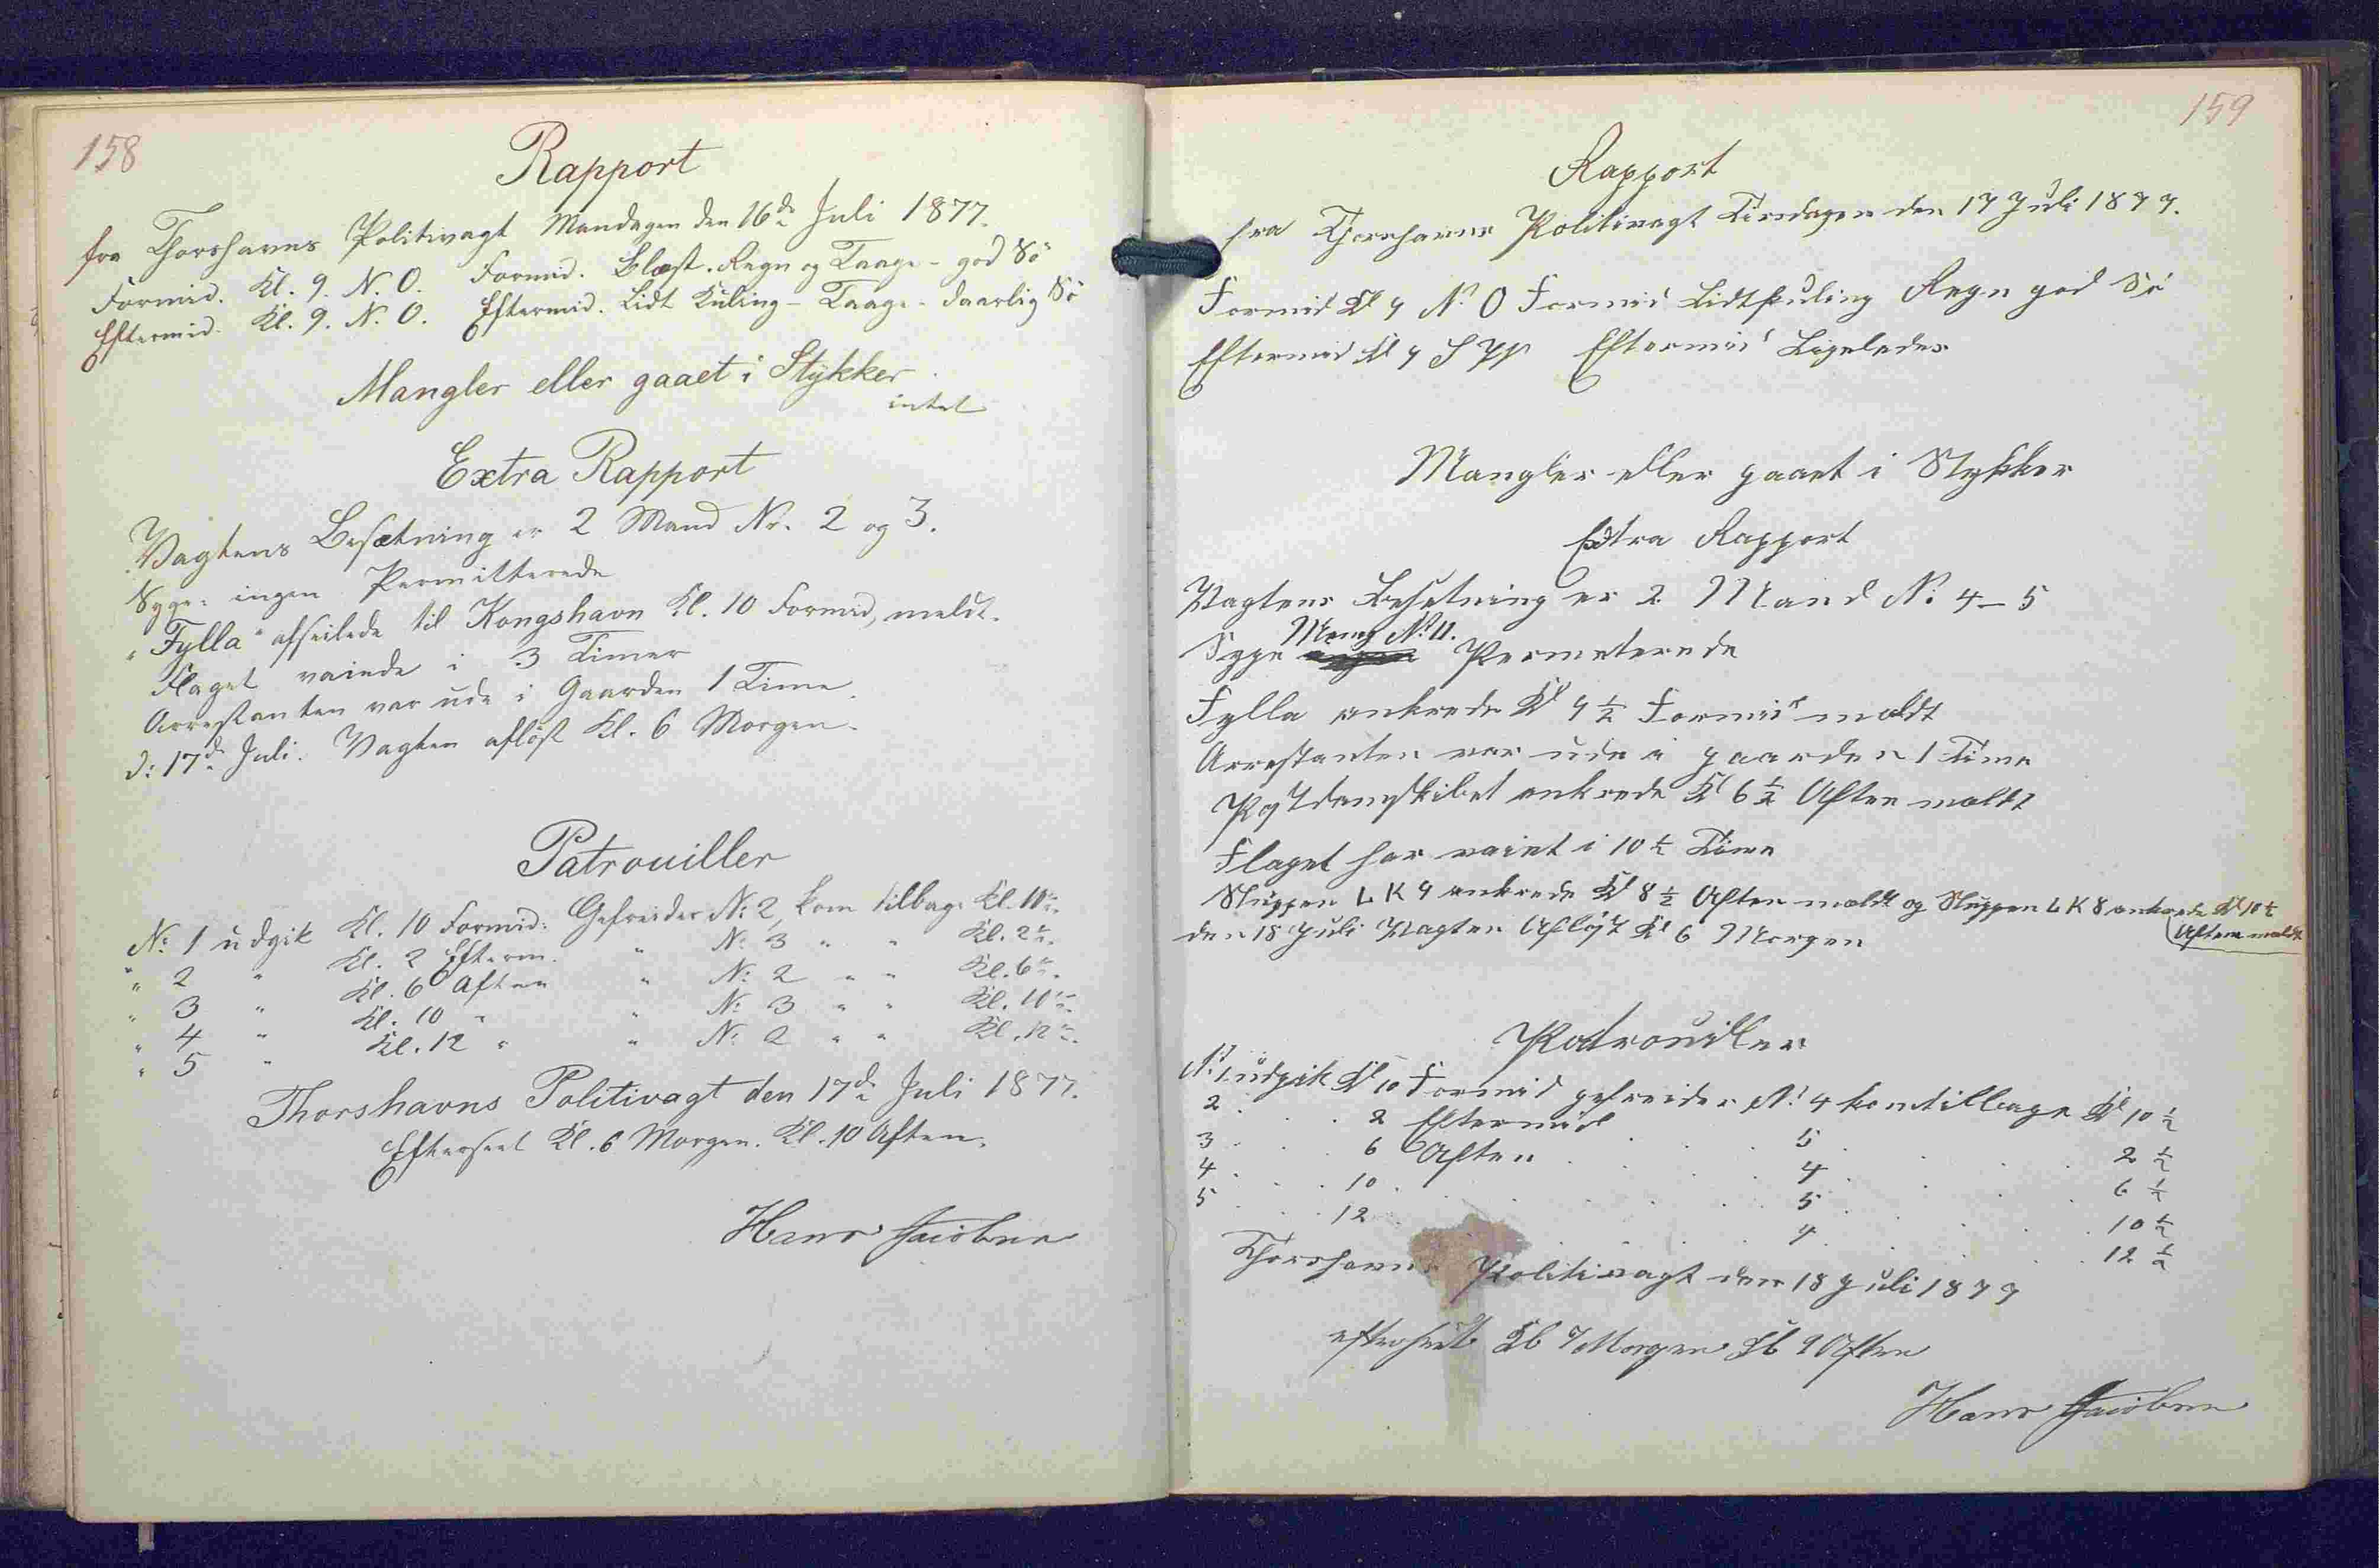 158
Rapport
fra Thorshavns Politivagt Mandagen den 16de Juli 1877.
Formid. Kl. 9. N. O. Formid. Blæst. Regn og Taage - god Sö
Eftermid. Kl. 9. N. O. Eftermid. Lidt Kuling - Taage - daarlig Sö
Mangler eller gaaet i Stykker
intet
Extra Rapport
Vagtens Besætning er 2 Mand Nr. 2 og 3.
Syge: ingen Permitterede
"Fylla" afseilede til Kongshavn Kl. 10 Formid, meldt.
Flaget vaiede i 3 Timer
Arrestanten var ude i Gaarden 1 Time.
d: 17de Juli. Vagten aflöst Kl. 6 Morgen.
Patrouiller
No: 1 udgik Kl. 10 Formid: Gefreider No: 2, kom tilbage Kl. 10½.
" 2 " Kl. 2 Efterm. " No: 3 " " Kl. 2½.
" 3 " Kl. 6 Aften " No: 2 " " Kl. 6½.
" 4 " Kl. 10 " " No: 3 " " Kl. 10½.
" 5 " Kl. 12 " " No: 2 " " Kl. 12½.
Thorshavns Politivagt den 17de Juli 1877.
Efterseet Kl. 6 Morgen. Kl. 10 Aften.
Hans Jacobsen
159
Rapport
fra Thorshavns Politivagt Tirsdagen den 17 Juli 1877.
Formid Kl 9 N. O Formid Lidt Kuling Regn god Sö
Eftermid Kl 9 S W Eftermid Ligeledes
Mangler eller gaaet i Stykker
Extra Rapport
Vagtens Besetning er 2 Mand No: 4 - 5
Syge No: 11. Permeterede
Fylla ankrede Kl 9 ½ Formid meldt
Arrestanten var ude i gaarden 1 Time
Postdampskibet ankrede Kl 6 ½ Aften meldt
Flaget har vaiet i 10 ½ Time
Sluppen L K 9 ankrede Kl 8 ½ Aften meldt og Sluppen L K 8 ankrede Kl 10 ½
Aften meldt
den 18 Juli Vagten Aflöst Kl 6 Morgen
Patrouiller
No: 1 udgik Kl 10 Formid gefreider No: 4 kom tilbage Kl 10 ½
2 . . . 2 Eftermid . . 5 . . . 2 ½
3 . . . 6 Aften . . 4 . . . 6 ½
4 . . . 10 . . . 5 . . . 10 ½
5 . . . 12 . . . 4 . . . 12 ½
Thorshavns Politivagt den 18 Juli 1877
efterseet Kl 7 Morgen Kl 9 Aften
Hans Jacobsen